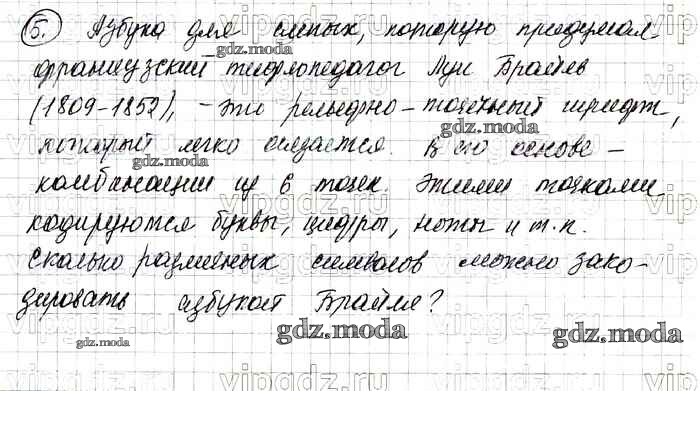 5. Азбука для слепых, которую придумал
французский тифлопедагог Луи Брайль
(1809-1852), - это рельефно-точечный шрифт,
который легко осязается. В его основе -
комбинации из 6 точек. Этими точками
кодируются буквы, цифры, ноты и т.п.
Сколько различных символов можно зако-
дировать азбукой Брайля?
gdz.moda
gdz.moda
gdz.moda
gdz.moda
gdz.moda
gdz.moda
gdz.moda
vipgdz.ru
vipgdz.ru
vipgdz.ru
vipgdz.ru